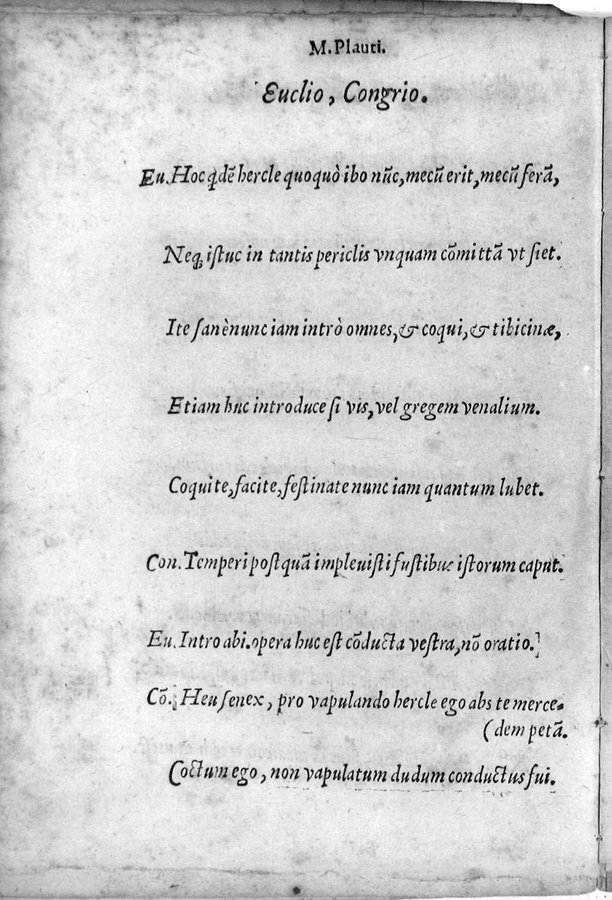 M. Plauti.
Euclio, Congrio.
Eu. Hoc qdē hercle quoquò ibo nūc, mecū erit, mecū ferā,
Neq; istuc in tantis periclis vnquam cōmittā vt siet.
Ite sanè nunc iam intrò omnes, & coqui, & tibicinæ,
Etiam huc introduce si vis, vel gregem venalium.
Coquite, facite, festinate nunc iam quantum lubet.
Con. Temperi postquā implevisti fustibus istorum caput.
Eu. Intro abi. opera huc est cōducta vestra, nō oratio.]
Cō. Heu senex, pro vapulando hercle ego abs te merce-
(dem petā.
Coctum ego, non vapulatum dudum conductus fui.